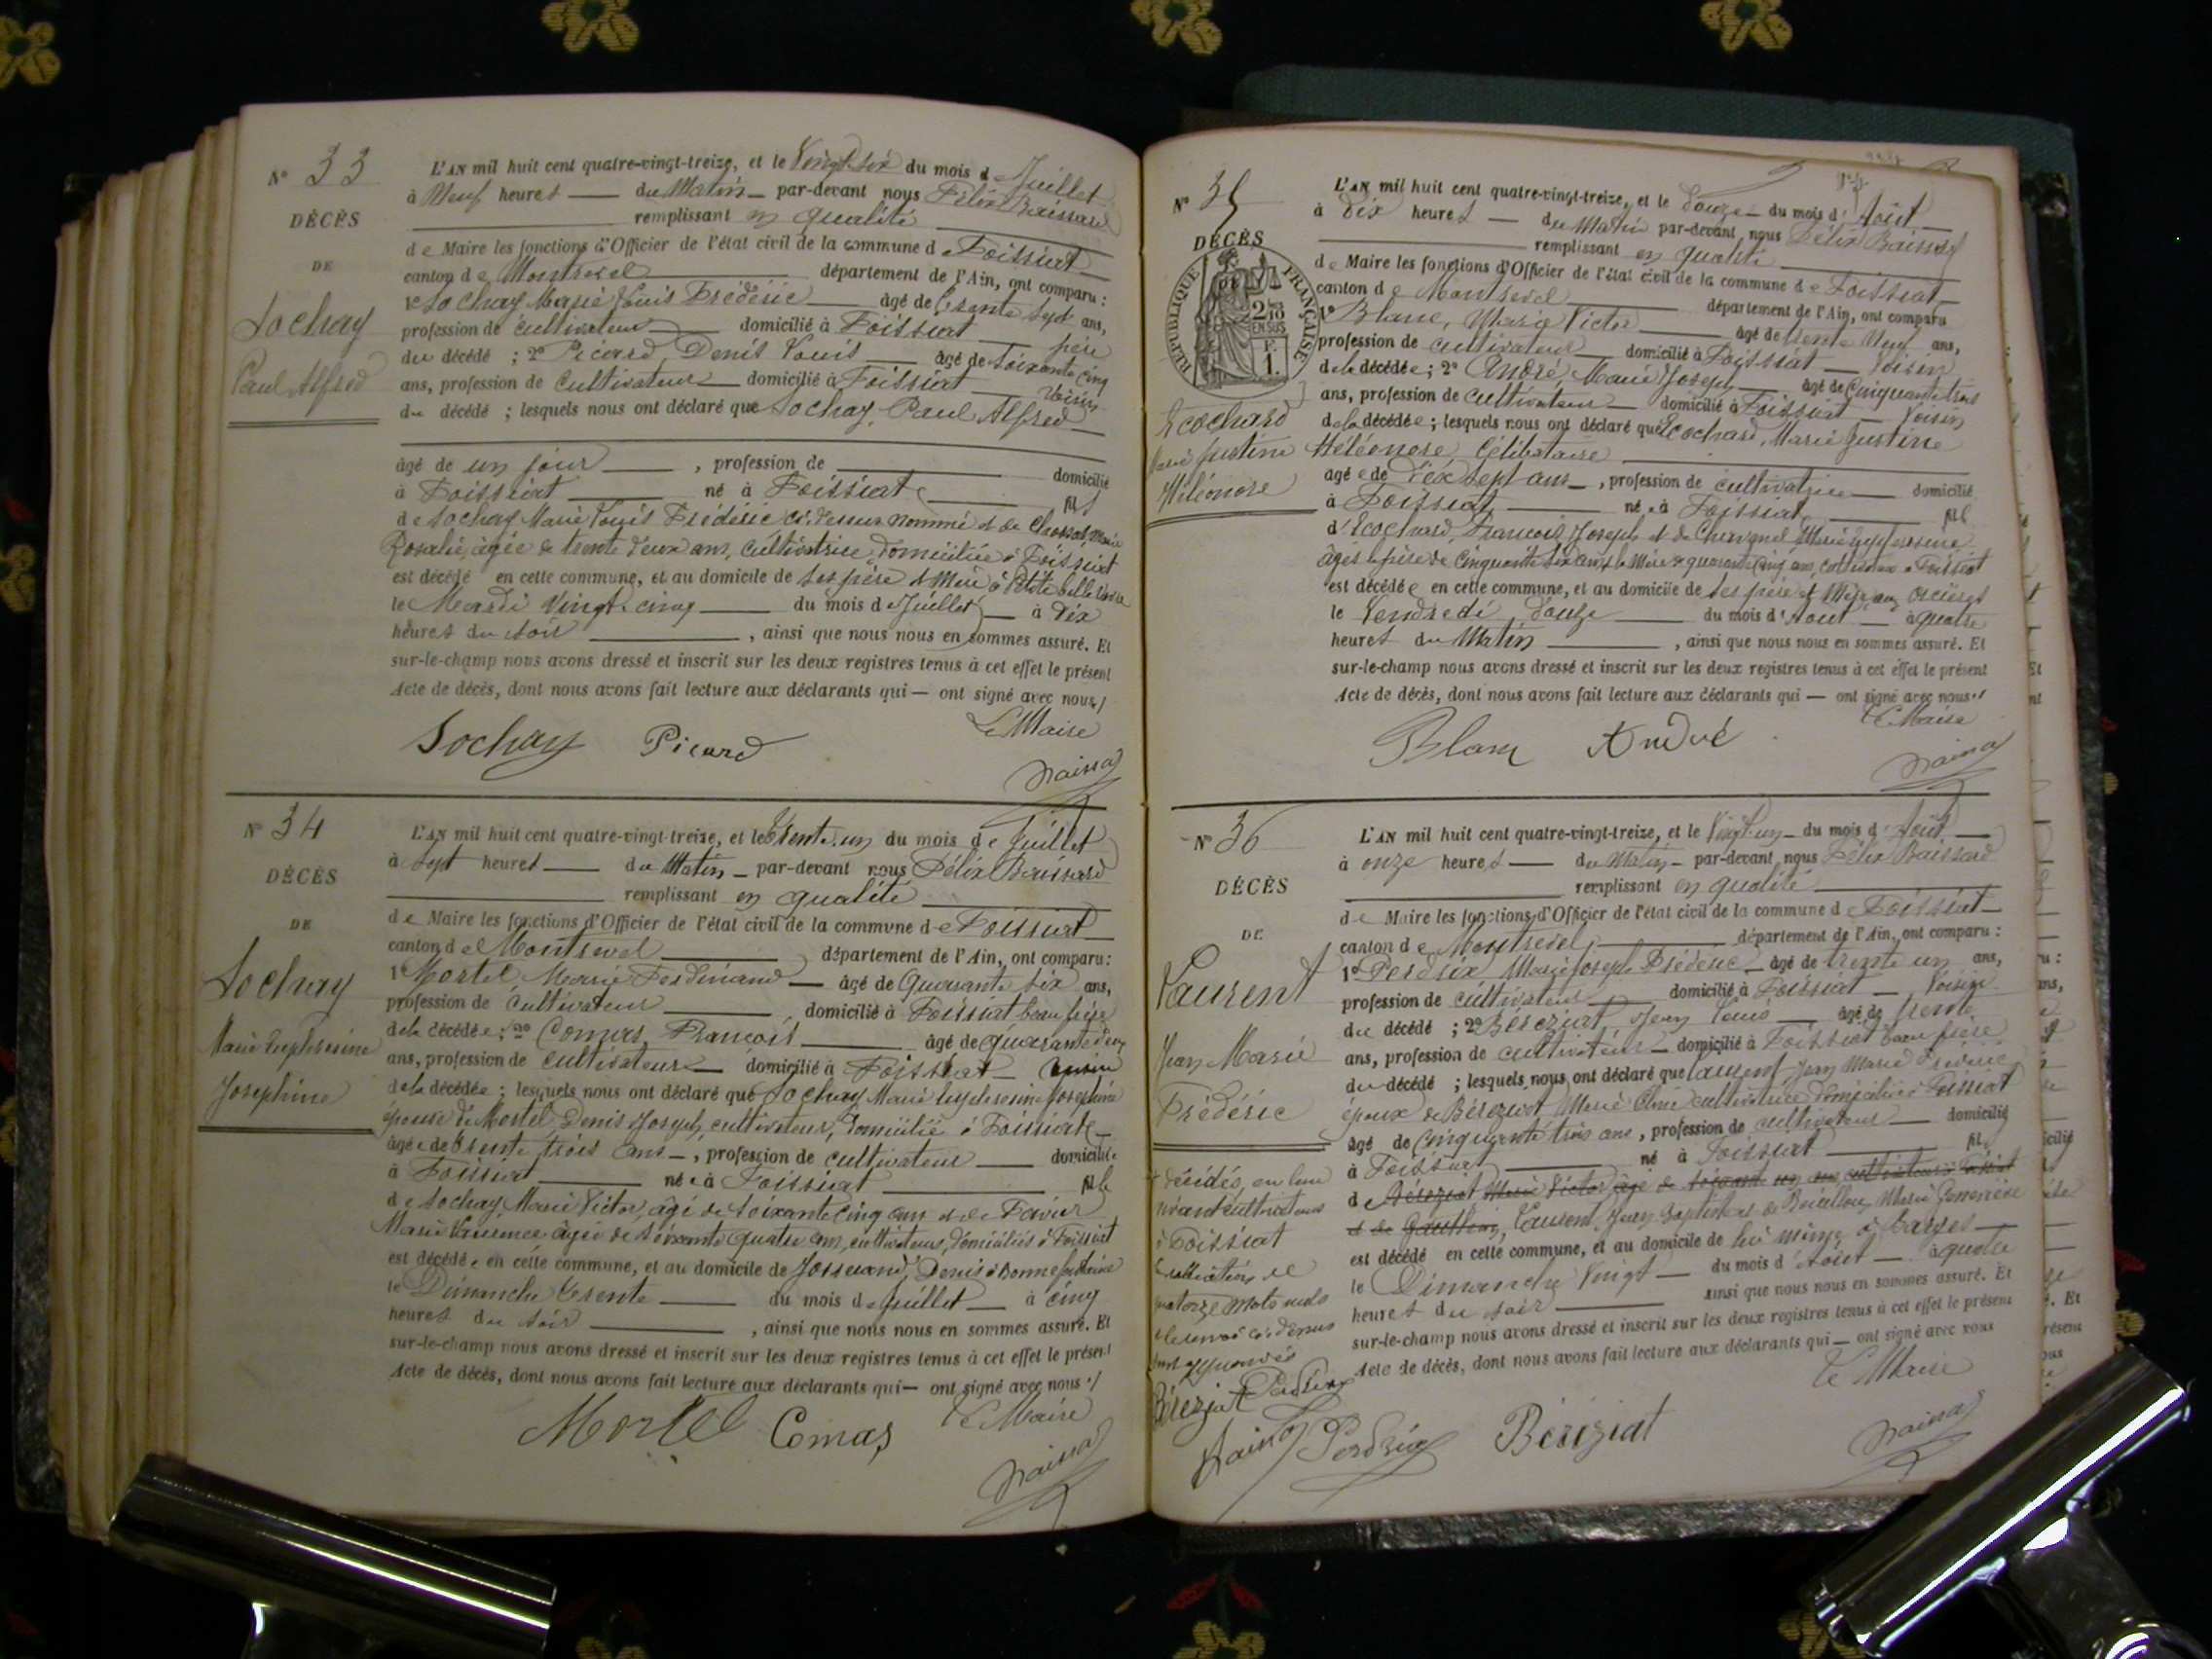 N° 33
DÉCÈS
DE
Sochay
Paul Alfred
L'AN mil huit cent quatre-vingt-treize, et le Vingt six du mois de Juillet
à Neuf heures du Matin par-devant nous Félix Baissard
remplissant en qualité
de Maire les fonctions d'Officier de l'état civil de la commune de Foissiat
canton de Montrevel département de l'Ain, ont comparu :
1° Sochay Marie Louis Frédéric âgé de trente sept ans,
profession de cultivateur domicilié à Foissiat père
du décédé ; 2° Picard, Denis Louis âgé de soixante cinq
ans, profession de Cultivateur domicilié à Foissiat Voisin
du décédé ; lesquels nous ont déclaré que Sochay, Paul Alfred
âgé de un jour , profession de domicilié
à Foissiat né à Foissiat fils
de Sochay Marie Louis Frédéric ci-dessus nommé et de Marie
Rosalie, âgée de trente deux ans, cultivatrice, domiciliée à Foissiat
est décédé en cette commune, et au domicile de ses père et Mère à Petite
le Mardi Vingt cinq du mois de Juillet à dix
heures du soir , ainsi que nous nous en sommes assuré. Et
sur-le-champ nous avons dressé et inscrit sur les deux registres tenus à cet effet le présent
Acte de décès, dont nous avons fait lecture aux déclarants qui — ont signé avec nous
Le Maire
Sochay Picard
N° 34
DÉCÈS
DE
Sochay
Marie Euphrosine
Joséphine
L'AN mil huit cent quatre-vingt-treize, et le trente un du mois de Juillet
à sept heures du Matin par-devant nous Félix Baissard
remplissant en qualité
de Maire les fonctions d'Officier de l'état civil de la commune de Foissiat
canton de Montrevel département de l'Ain, ont comparu :
1° Mortel Marie Ferdinand âgé de Quarante six ans,
profession de Cultivateur , domicilié à Foissiat beau frère
de la décédée ; 2° Comas, François âgé de quarante deux
ans, profession de cultivateur domicilié à Foissiat voisin
de la décédée ; lesquels nous ont déclaré que Sochay Marie Euphrosine Joséphine
épouse de Mortel Denis Joseph, cultivateur, domicilié à Foissiat
âgée de trente trois ans , profession de cultivateur domiciliée
à Foissiat née à Foissiat fille
de Sochay Marie Victor, âgé de soixante cinq ans et de
Marie Laurence âgée de soixante quatre ans, cultivateurs, domiciliés à Foissiat
est décédée en cette commune, et au domicile de Josserand, Denis à
le Dimanche trente du mois de Juillet à cinq
heures du soir , ainsi que nous nous en sommes assuré. Et
sur-le-champ nous avons dressé et inscrit sur les deux registres tenus à cet effet le présent
Acte de décès, dont nous avons fait lecture aux déclarants qui — ont signé avec nous
Le Maire
Mortel Comas
N° 35
DÉCÈS
RÉPUBLIQUE FRANÇAISE
2/10 EN SUS
F. 1.
Ecochard
Marie Justine
Héléonore
L'AN mil huit cent quatre-vingt-treize, et le Douze du mois d'Août
à Dix heures du Matin par-devant nous Félix Baissard
remplissant en qualité
de Maire les fonctions d'Officier de l'état civil de la commune de Foissiat
canton de Montrevel département de l'Ain, ont comparu
1° Blanc, Marie Victor âgé de trente Neuf ans,
profession de cultivateur domicilié à Foissiat Voisin
de la décédée ; 2° André, Marie Joseph âgé de Cinquante trois
ans, profession de cultivateur domicilié à Foissiat Voisin
de la décédée ; lesquels nous ont déclaré que Ecochard, Marie Justine
Héléonore Célibataire
âgée de Dix sept ans , profession de cultivatrice domicilié
à Foissiat née à Foissiat fille
d'Ecochard, François Joseph et de Marie
âgés le père de Cinquante ans, la Mère de quarante cinq ans, cultivateurs à Foissiat
est décédée en cette commune, et au domicile de ses père et Mère aux
le Vendredi douze du mois d'Aout à quatre
heures du Matin , ainsi que nous nous en sommes assuré. Et
sur-le-champ nous avons dressé et inscrit sur les deux registres tenus à cet effet le présent
Acte de décès, dont nous avons fait lecture aux déclarants qui — ont signé avec nous
Le Maire
Blanc André
N° 36
DÉCÈS
DE
Laurent
Jean Marie
Frédéric
L'AN mil huit cent quatre-vingt-treize, et le Vingt-un du mois d'Août
à onze heures du Matin par-devant nous Félix Baissard
remplissant en qualité
de Maire les fonctions d'Officier de l'état civil de la commune de Foissiat
canton de Montrevel département de l'Ain, ont comparu :
1° Perdrix Marie Joseph Frédéric âgé de trente un ans,
profession de cultivateur domicilié à Foissiat Voisin
du décédé ; 2° Béréziat, Jean Louis âgé de trente
ans, profession de cultivateur domicilié à Foissiat beau frère
du décédé ; lesquels nous ont déclaré que Laurent, Jean Marie Frédéric
époux de Béréziat, Marie cultivatrice domiciliée à Foissiat
âgé de cinquante trois ans , profession de cultivateur domicilié
à Foissiat né à Foissiat fils
de Béréziat Marie Victor âgé de soixante un ans cultivateur à Foissiat
et de Gauthier, Laurent, Jean Baptiste et de Marie Geneviève
est décédé en cette commune, et au domicile de lui même à
le Dimanche Vingt du mois d'Août à quatre
heures du soir ainsi que nous nous en sommes assuré. Et
sur-le-champ nous avons dressé et inscrit sur les deux registres tenus à cet effet le présent
Acte de décès, dont nous avons fait lecture aux déclarants qui — ont signé avec nous
Le Maire
décédés, en leur
vivant cultivateurs
à Foissiat
quatorze mots nuls
ci-dessus
sont approuvés
Béréziat Perdrix
Perdrix Béréziat